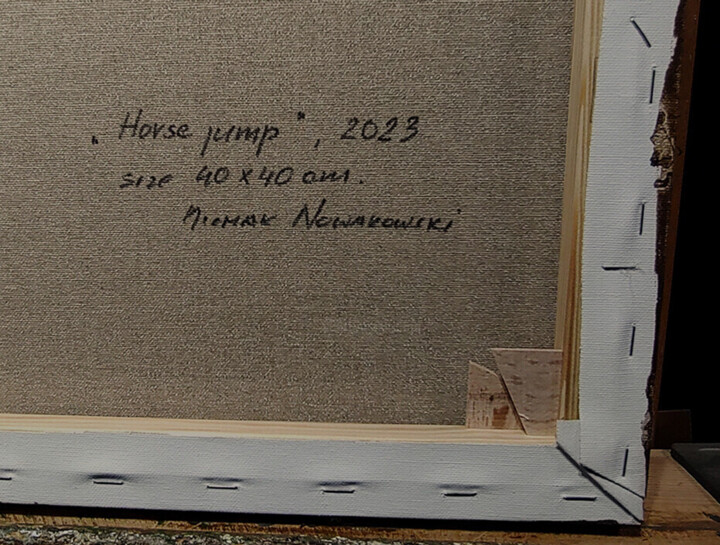 „Horse jump", 2023
size 40 x 40 cm.
Nowakowski